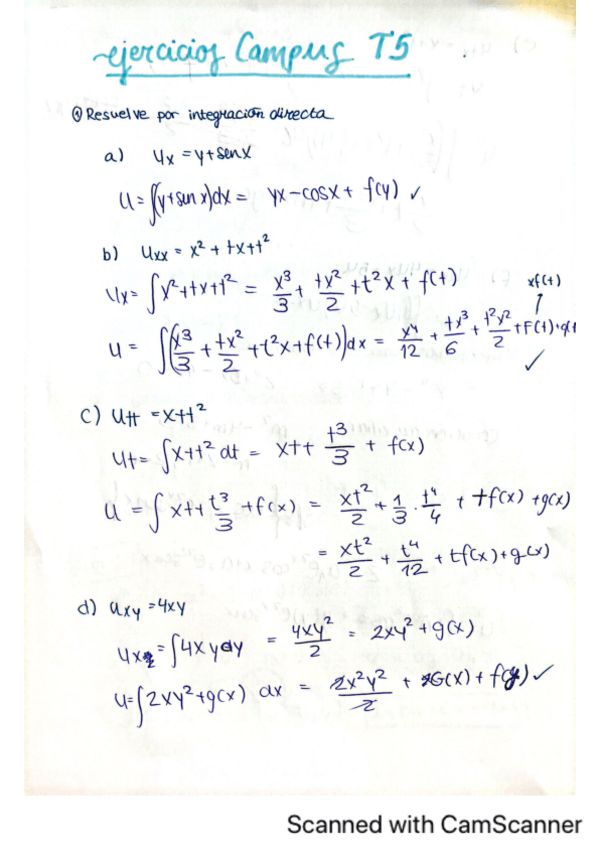 ejercicios Campus T5
① Resuelve por integración directa
a) Ux = y+senx
U = ∫(y+sen x)dx = yx-cosx + f(y) ✓
b) Uxx = x² + tx+t²
xf(t)
Ux = ∫x²+tx+t² = x³/3 + tx²/2 + t²x + f(t)
U = ∫(x³/3 + tx²/2 + t²x+f(t))dx = x⁴/12 + tx³/6 + t²x²/2 + F(t)+g(t
✓
c) Utt = x+t²
Ut = ∫x+t² dt = xt + t³/3 + f(x)
U = ∫xt+t³/3 + f(x) = xt²/2 + 1/3 · t⁴/4 + tf(x) + g(x)
= xt²/2 + t⁴/12 + tf(x)+g(x)
d) Uxy = 4xy
Ux = ∫4xydy = 4xy²/2 = 2xy² + g(x)
U = ∫2xy²+g(x) dx = 2x²y²/2 + G(x) + f(y) ✓
Scanned with CamScanner